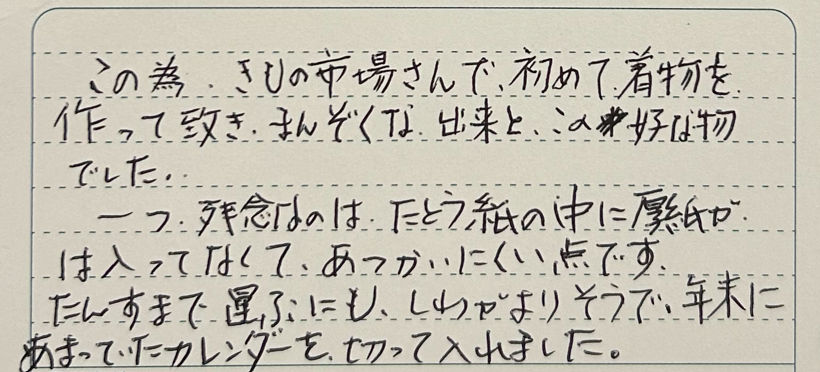 この為、きもの市場さんで、初めて着物を
作って致き、まんぞくな出来と、この好な物
でした。
一つ、残念なのは、たとう紙の中に厚紙が
は入ってなくて、あつかいにくい点です。
たんすまで運ぶにも、しわがよりそうで、年末に
あまっていたカレンダーを、切って入れました。